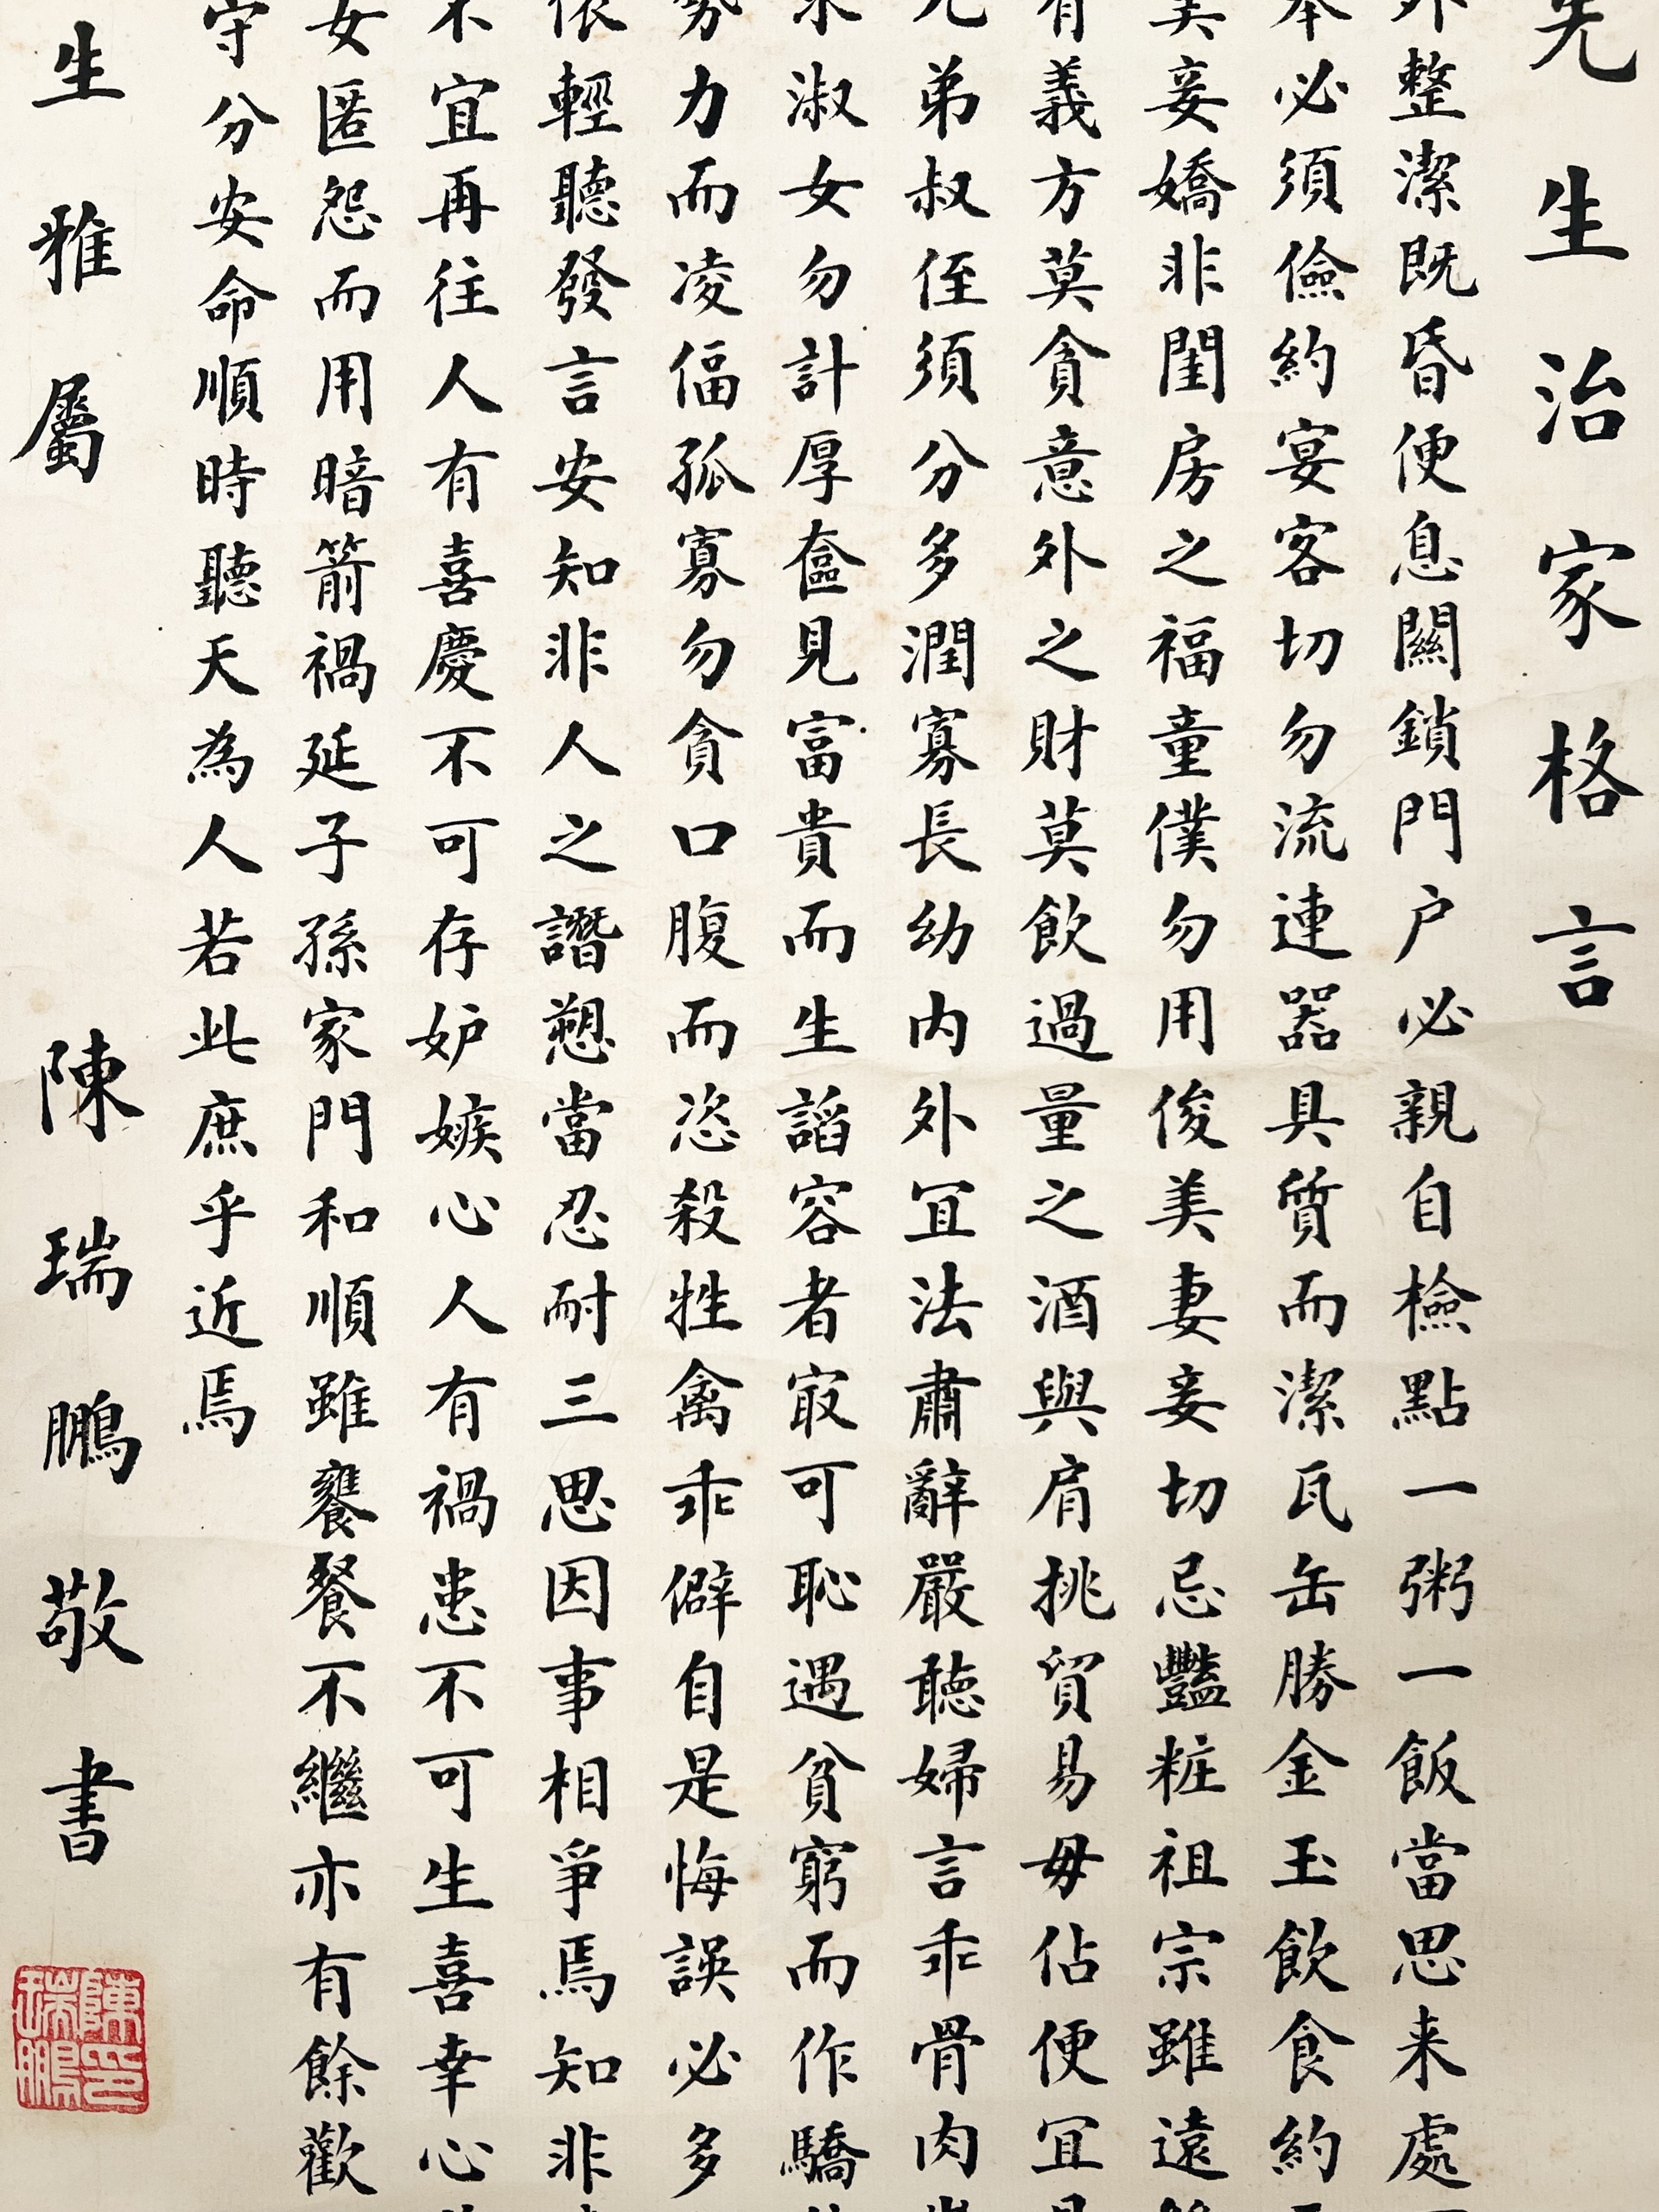 先生治家格言
外整潔既昏便息關鎖門户必親自檢點一粥一飯當思来處
奉必須儉約宴客切勿流連器具質而潔瓦缶勝金玉飲食約
美妾嬌非閨房之福童僕勿用俊美妻妾切忌豔粧祖宗雖遠
有義方莫貪意外之財莫飲過量之酒與肩挑貿易毋佔便宜
兄弟叔侄須分多潤寡長幼内外宜法肅辭嚴聴婦言乖骨肉
求淑女勿計厚奩見富貴而生諂容者㝡可恥遇貧窮而作驕
勢力而凌偪孤寡勿貪口腹而恣殺牲禽乖僻自是悔誤必多
依輕聽發言安知非人之譖愬當忍耐三思因事相爭焉知非
不宜再往人有喜慶不可存妒嫉心人有禍患不可生喜幸心
女匿怨而用暗箭禍延子孫家門和順雖饔餐不繼亦有餘歡
守分安命順時聽天為人若此庶乎近焉
生雅屬
陳瑞鵬敬書
陳印瑞鵬